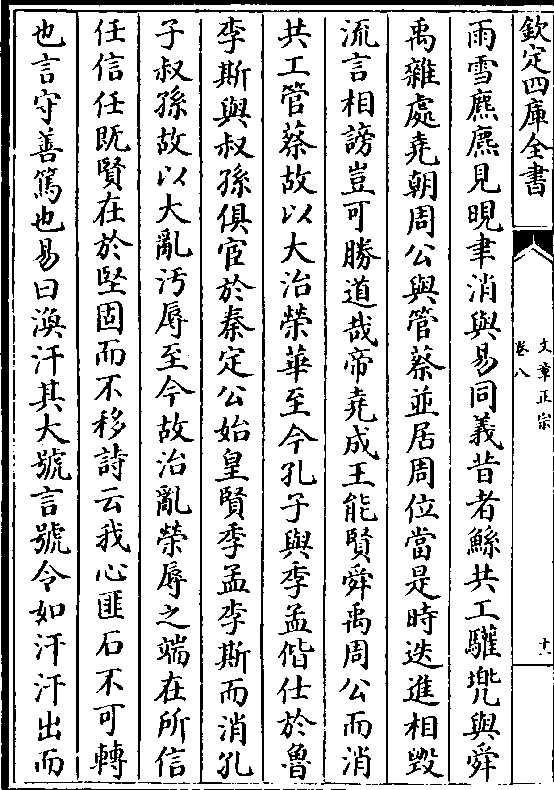 欽定四庫全書
文章正宗
卷八
十一
雨雪麃麃見晛聿消與易同義昔者鯀共工驩兠與舜
禹雜處堯朝周公與管蔡並居周位當是時迭進相毁
流言相謗豈可勝道哉帝堯成王能賢舜禹周公而消
共工管蔡故以大治榮華至今孔子與季孟偕仕於魯
李斯與叔孫俱宦於秦定公始皇賢季孟李斯而消孔
子叔孫故以大亂汚辱至今故治亂榮辱之端在所信
任信任既賢在於堅固而不移詩云我心匪石不可轉
也言守善篤也易曰渙汗其大號言號令如汗汗出而